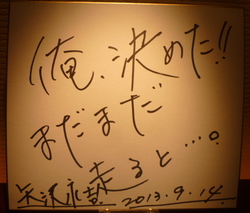 俺、決めた!!
まだまだ
走ると…。
矢沢永吉 2013.9.14.